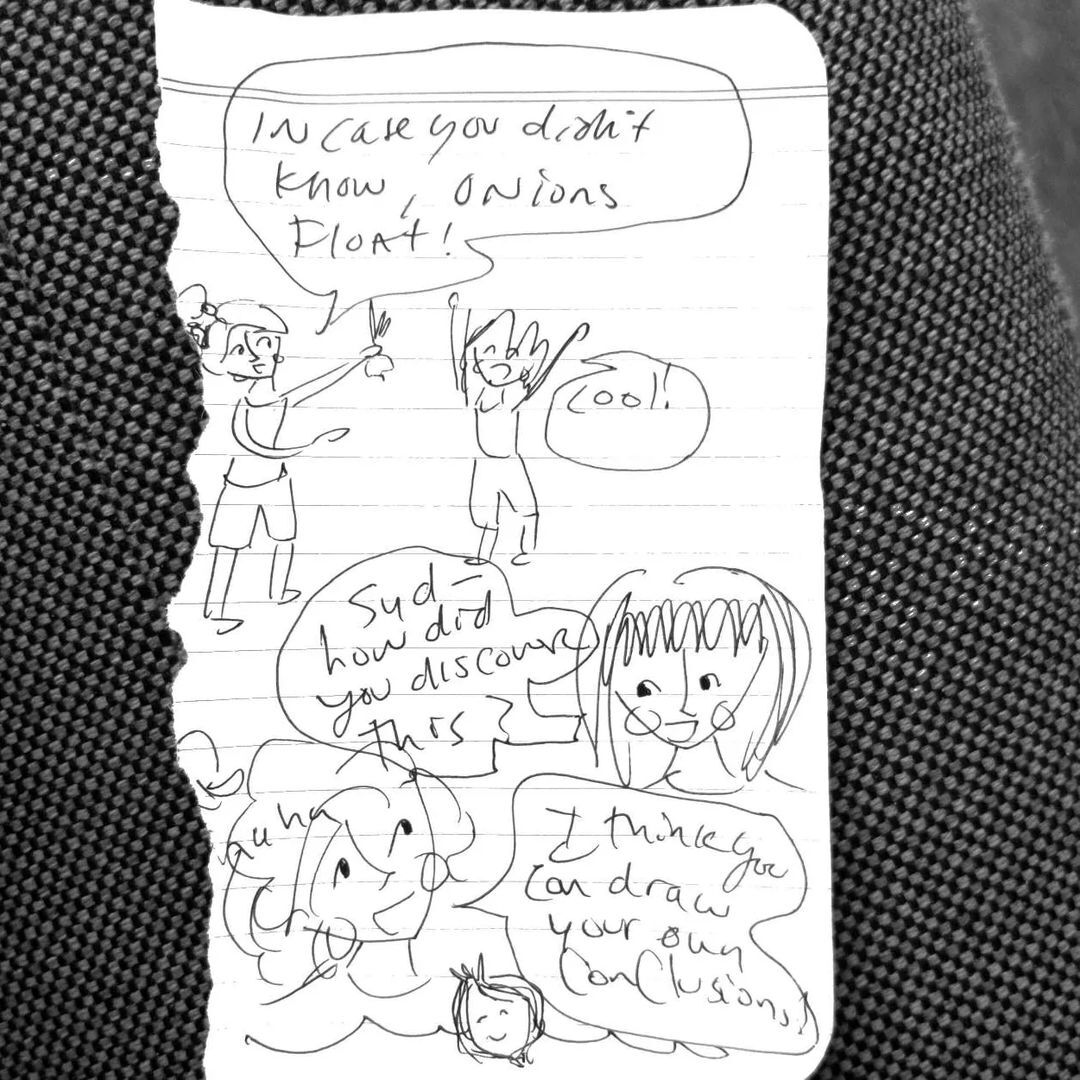 IN case you didn't
know, onions
Float!
Cool!
Syd –
how did
you discover
this
I think you
can draw
your own
Conclusions!